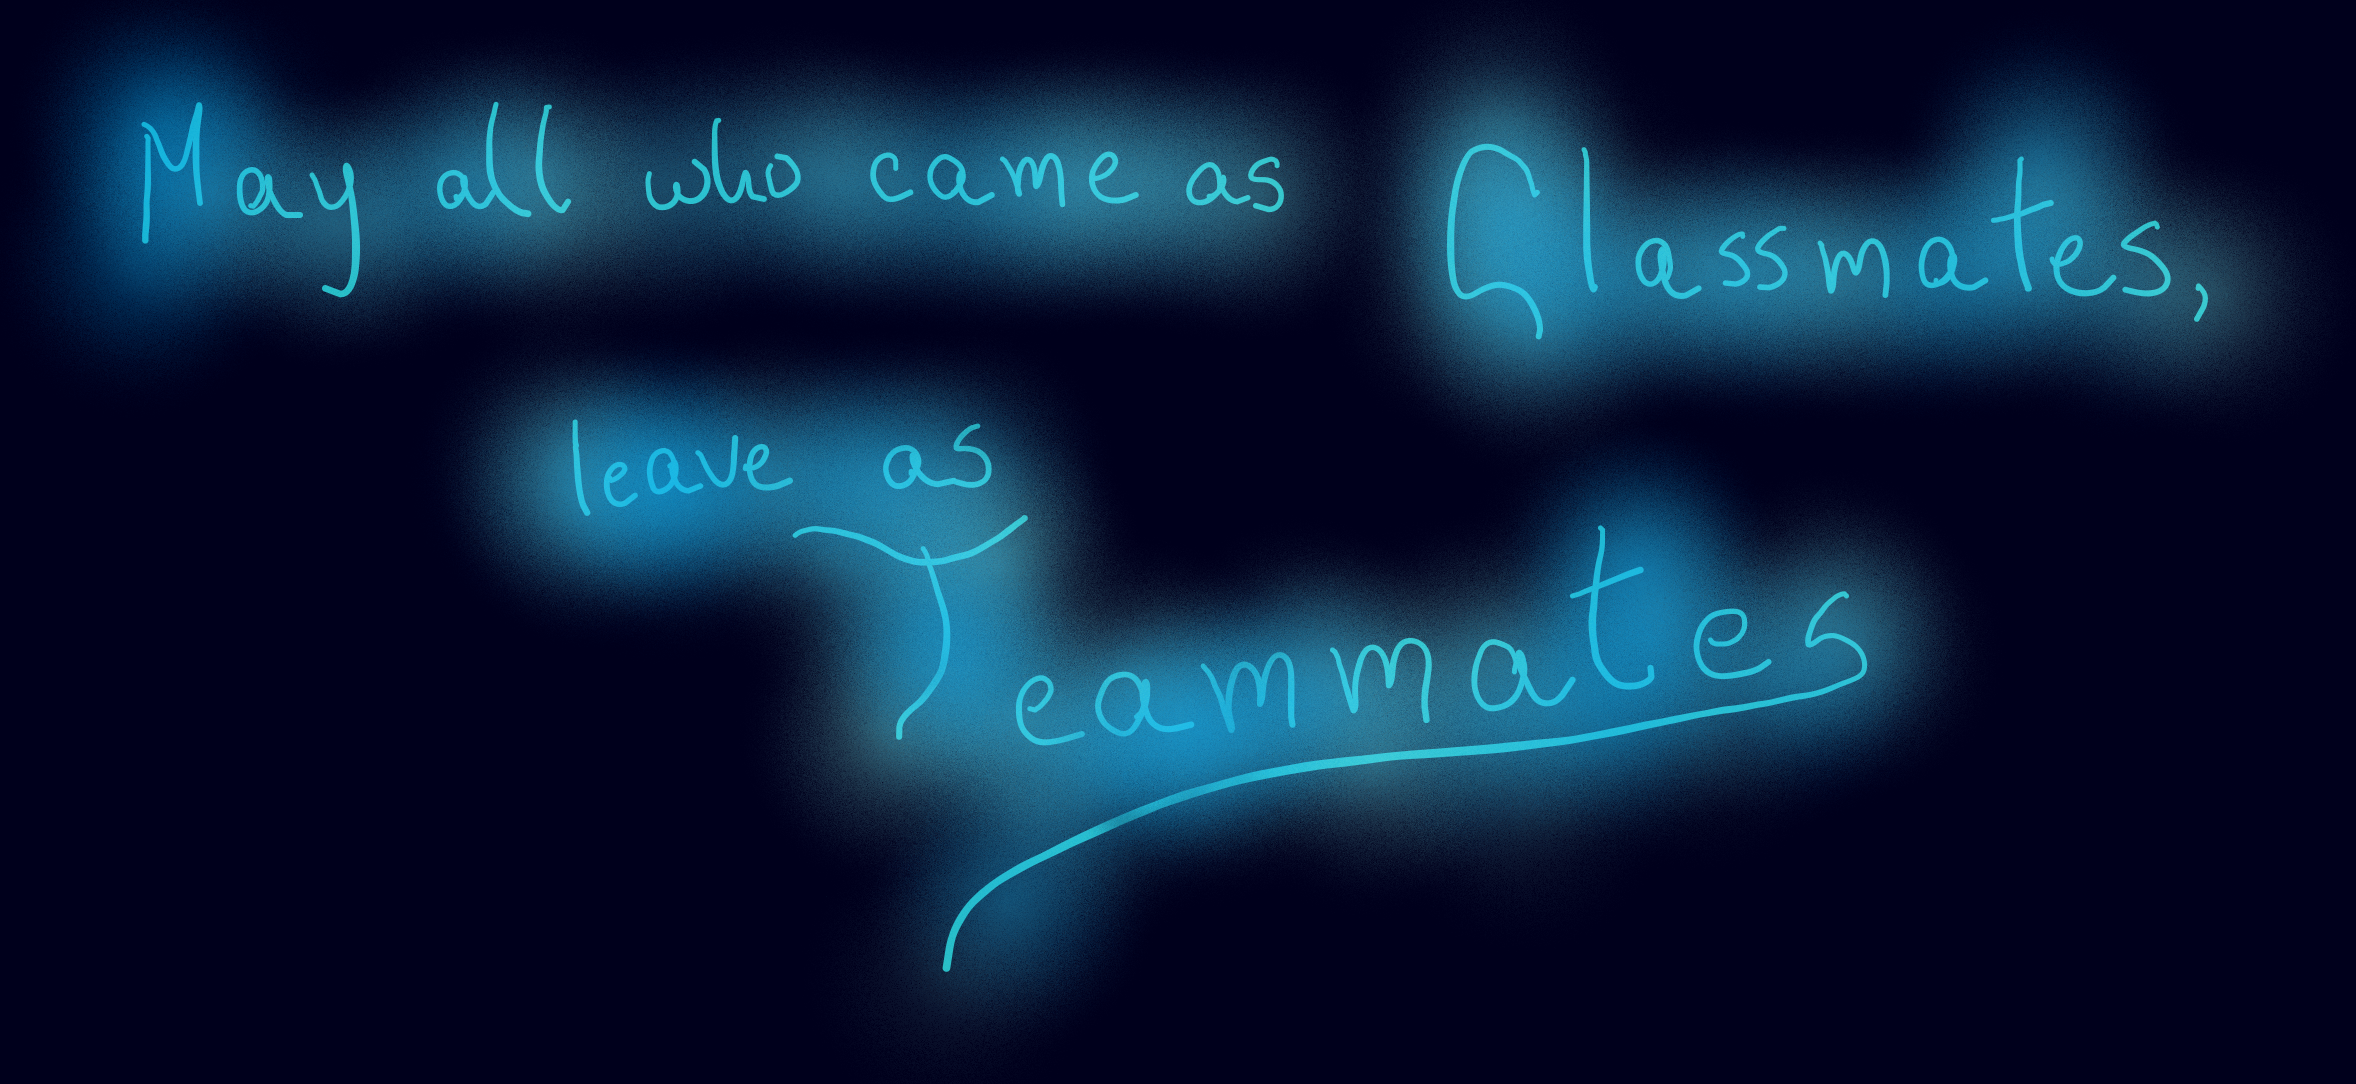 May all who came as Classmates,
leave as
Teammates